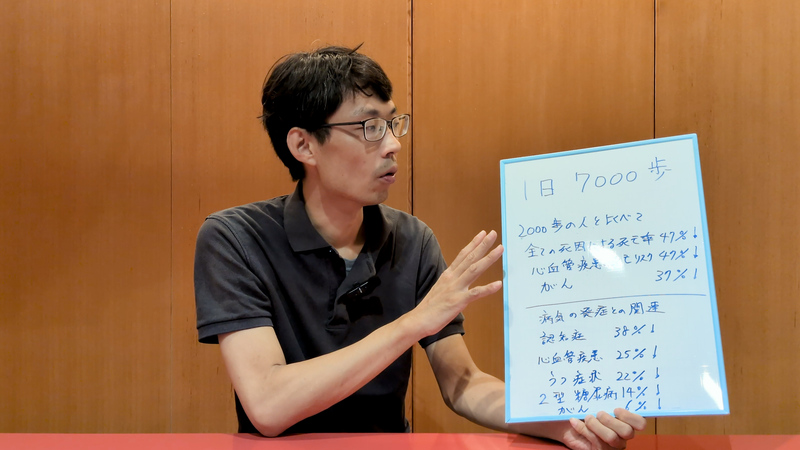 1日 7000歩
2000歩の人とくらべて
全ての死因による死亡率 47%↓
心血管疾患 リスク 47%↓
がん 37%↓
病気の発症との関連
認知症 38%↓
心血管疾患 25%↓
うつ症状 22%↓
2型糖尿病 14%↓
がん 6%↓